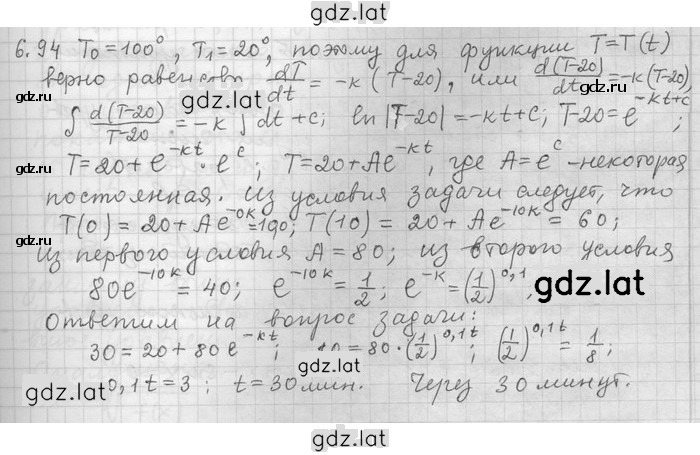 gdz.lat
6.94 T₀=100°, T₁=20°, поэтому для функции T=T(t)
верно равенств dT/dt = -k(T-20), или d(T-20)/dt = -k(T-20)
gdz.ru gdz.lat gdz.ru
∫ d(T-20)/(T-20) = -k ∫dt+c; ln|T-20| = -kt+c; T-20 = e^(-kt+c);
T=20+e^(-kt)·e^c; T=20+Ae^(-kt), где A=e^c -некоторая
постоянная. Из условия задачи следует, что
gdz.ru gdz.lat gdz.ru
T(0) = 20+Ae^(-0k)=100; T(10) = 20+Ae^(-10k) = 60;
Из первого условия A=80; из второго условия
80e^(-10k) = 40; e^(-10k) = 1/2; e^(-k) = (1/2)^0,1,
gdz.lat
Ответим на вопрос задачи:
30 = 20+80e^(-kt); 10 = 80·(1/2)^0,1t; (1/2)^0,1t = 1/8;
gdz.lat
gdz.lat 0,1t=3; t=30мин. Через 30 минут.
gdz.lat